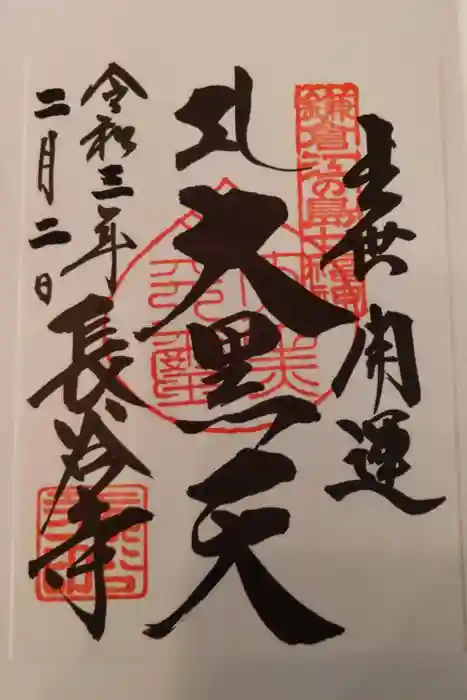 出世開運
鎌倉江の島七福神
礼大黒天
長谷寺
令和三年
二月二日